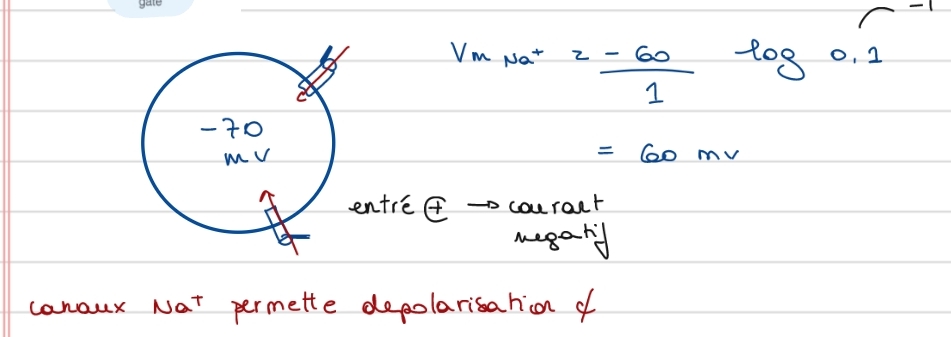 gate
-1
Vm Na+ = -60/1 log 0,1
= 60 mv
-70
mV
entré ⊕ → courant
negatif
canaux Na+ permette depolarisation ¢